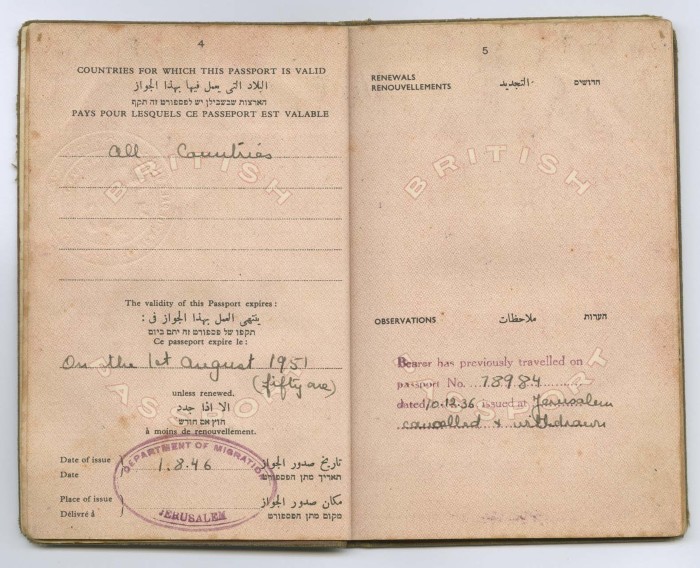 4
COUNTRIES FOR WHICH THIS PASSPORT IS VALID
البلاد التى يعمل فيها بهذا الجواز
הארצות שבשבילן יש לפספורט זה תקף
PAYS POUR LESQUELS CE PASSEPORT EST VALABLE
all Countries
BRITISH
The validity of this Passport expires:
ينتهى العمل بهذا الجواز فى :
תקפו של פספורט זה יתם ביום
Ce passeport expire le:
On the 1st August 1951
(fifty one)
PASSPORT
unless renewed.
الا اذا جدد
חוץ אם חודש
à moins de renouvellement.
Date of issue 1.8.46 تاريخ صدور الجواز
Date תאריך מתן הפספורט
Place of issue مكان صدور الجواز
Délivré à מקום מתן הפספורט
DEPARTMENT OF MIGRATION
JERUSALEM
5
RENEWALS التجديد חדושים
RENOUVELLEMENTS
BRITISH
OBSERVATIONS ملاحظات הערות
PASSPORT
Bearer has previously travelled on
passport No. 78984
dated 10.12.36 issued at Jerusalem
cancelled & withdrawn